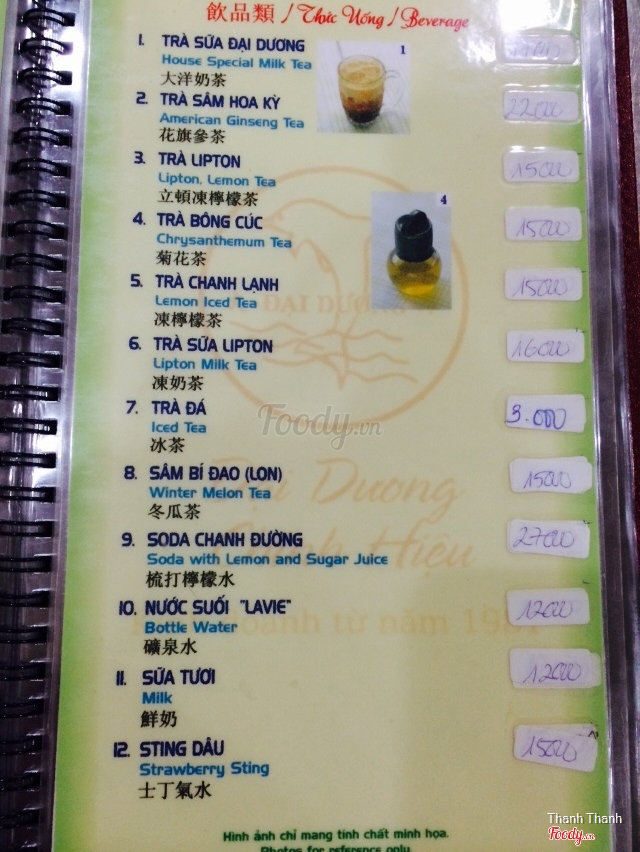 飲品類 / Thức Uống / Beverage
1. TRÀ SỮA ĐẠI DƯƠNG
House Special Milk Tea
大洋奶茶
1
2. TRÀ SÂM HOA KỲ 22000
American Ginseng Tea
花旗參茶
3. TRÀ LIPTON 15000
Lipton, Lemon Tea
立頓凍檸檬茶
4
4. TRÀ BÔNG CÚC 15000
Chrysanthemum Tea
菊花茶
5. TRÀ CHANH LẠNH 15000
Lemon Iced Tea
凍檸檬茶
ĐẠI DƯƠNG
6. TRÀ SỮA LIPTON 16000
Lipton Milk Tea
凍奶茶
7. TRÀ ĐÁ 3.000
Iced Tea
冰茶
Foody.vn
8. SÂM BÍ ĐAO (LON) 15000
Winter Melon Tea
冬瓜茶
Đại Dương
9. SODA CHANH ĐƯỜNG 27000
Soda with Lemon and Sugar Juice
梳打檸檬水
Hiệu
10. NƯỚC SUỐI "LAVIE" 12000
Bottle Water
礦泉水
doanh từ năm
11. SỮA TƯƠI 12000
Milk
鮮奶
12. STING DÂU 15000
Strawberry Sting
士丁氣水
Hình ảnh chỉ mang tính chất minh họa.
Photos for reference only.
Thanh Thanh
Foody.vn